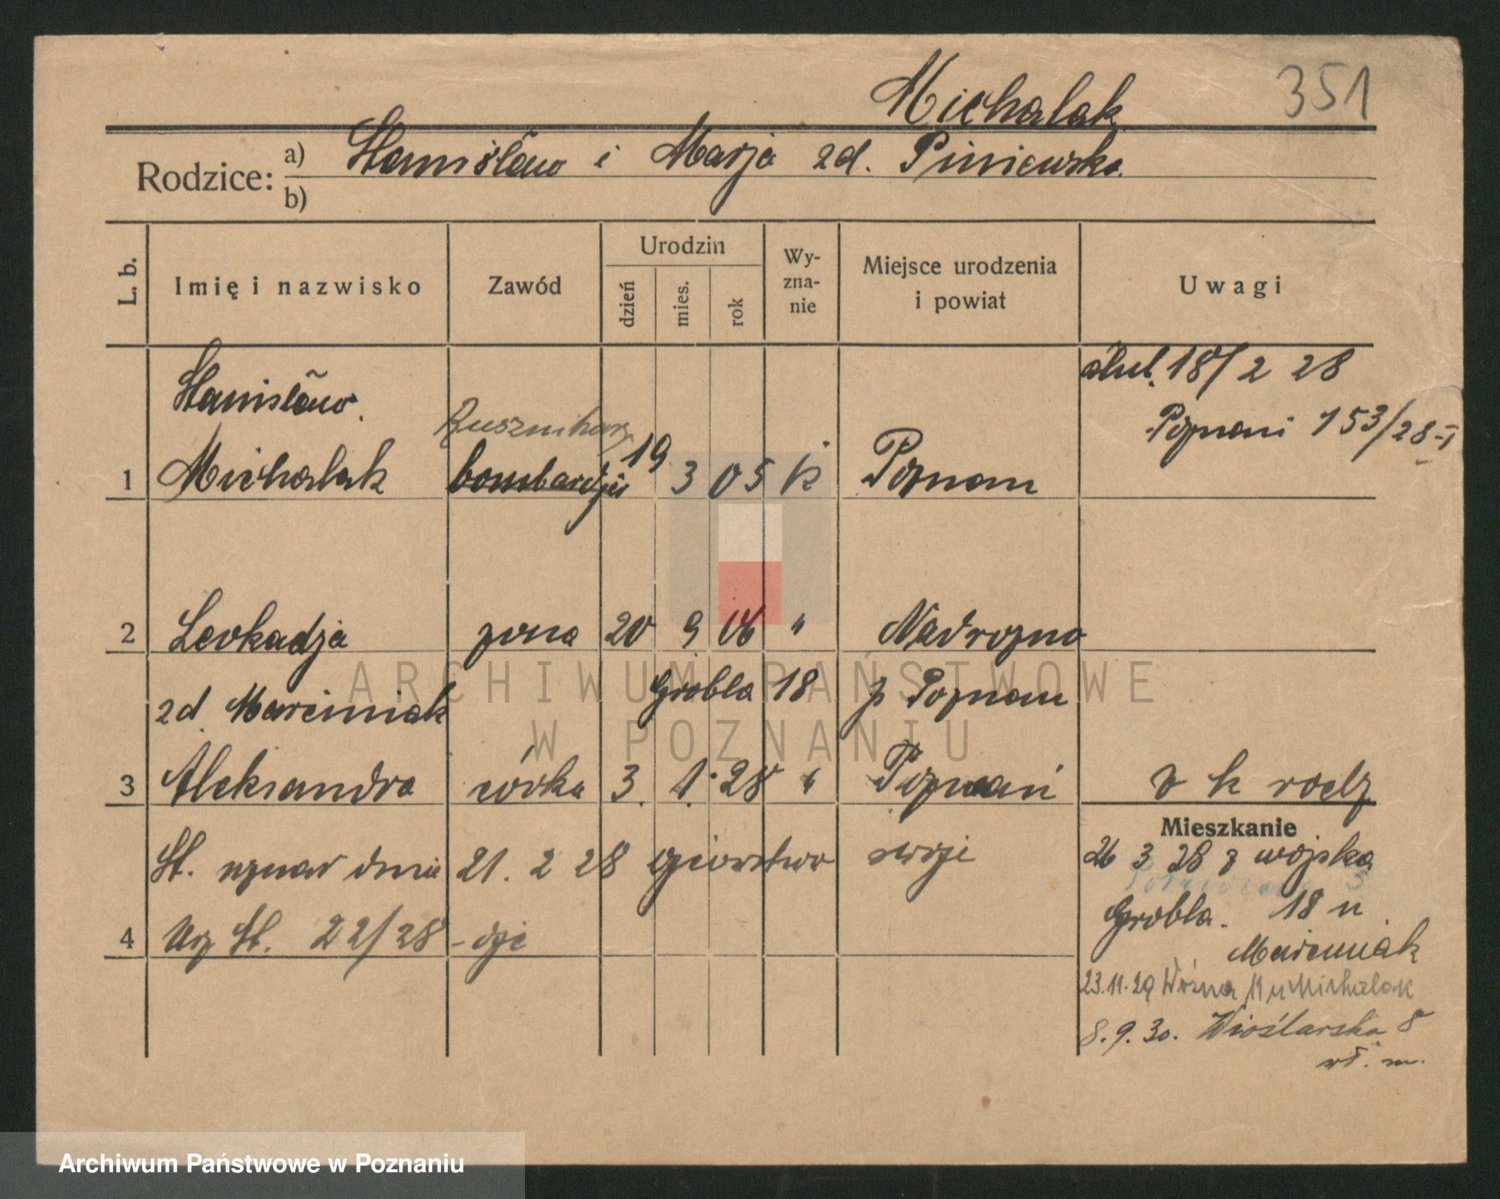 Michalak 351
Rodzice: a) Stanisław i Marja zd. Piniewska
b)
L. b. Imię i nazwisko Zawód Urodzin dzień mies. rok Wy-zna-nie Miejsce urodzenia i powiat Uwagi
ślub. 18/2 28
Stanisław Poznań 153/28-I
Rusznikarz
1 Michalak bombardjer 19 3 05 k Poznań
2 Leokadja żona 20 9 06 " Nadrożno
zd. Marciniak Grobla 18 p Poznań
3 Aleksandra córka 3. 1. 28 " Poznań v k rodz
Mieszkanie
St. uznał dnia 21. 2 28 ojcostwo swoje 26 3 28 z wojska
Grobla. 18 u
4 Urz St. 22/28 Marciniak
23.11.29 Woźna 11 u Michalak
8.9.30. Wioślarska 8
wł. m.
ARCHIWUM PAŃSTWOWE
W POZNANIU
Archiwum Państwowe w Poznaniu